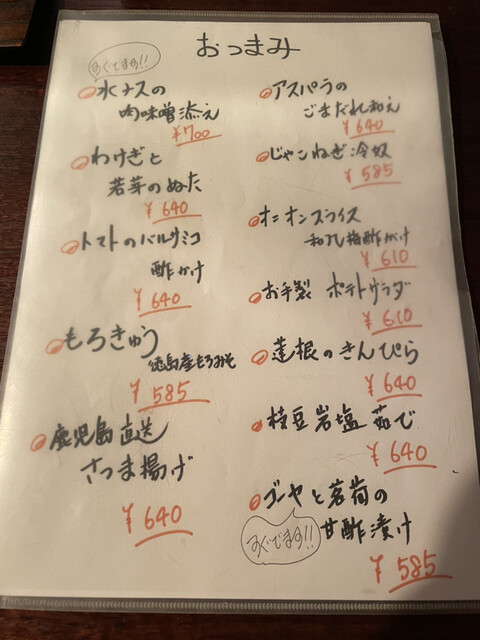 おつまみ
すぐでます!!
水ナスの
肉味噌添え
¥700
わけぎと
若芽のぬた
¥640
トマトのバルサミコ
酢かけ
¥640
もろきゅう
徳島産もろみそ
¥585
鹿児島直送
さつま揚げ
¥640
アスパラの
ごまだれ和え
¥640
じゃこねぎ冷奴
¥585
オニオンスライス
梅酢がけ
¥610
お手製 ポテトサラダ
¥610
蓮根のきんぴら
¥640
枝豆岩塩茹で
¥640
ゴーヤと茗荷の
甘酢漬け
すぐでます!!
¥585